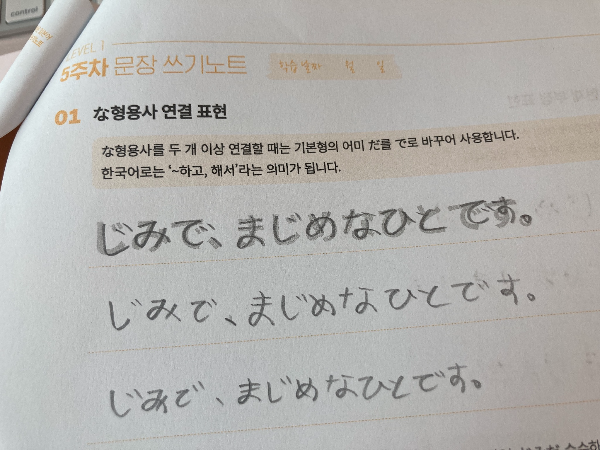 control
LEVEL 1
5주차 문장 쓰기노트
학습 날짜 월 일
01 な형용사 연결 표현
な형용사를 두 개 이상 연결할 때는 기본형의 어미 だ를 で로 바꾸어 사용합니다.
한국어로는 '~하고, 해서'라는 의미가 됩니다.
じみで、まじめなひとです。
じみで、まじめなひとです。
じみで、まじめなひとです。